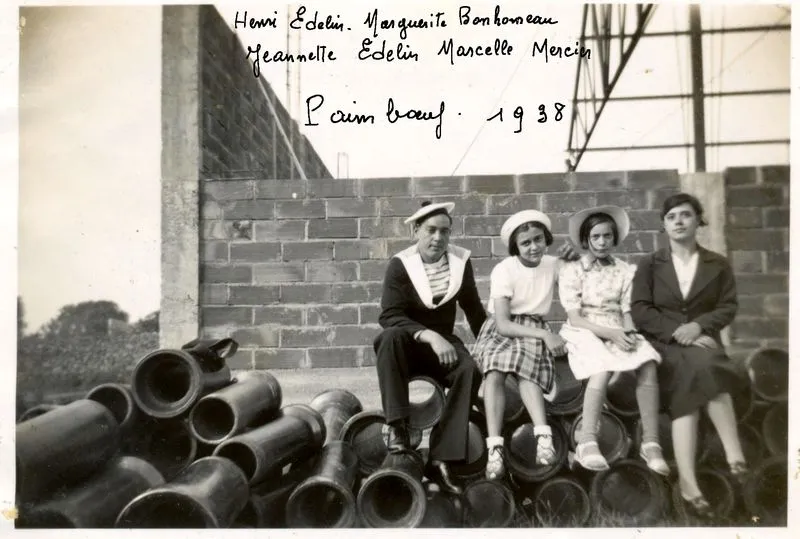 Henri Edelin. Marguerite Bonhomeau
Jeannette Edelin Marcelle Mercier
Paimboeuf. 1938